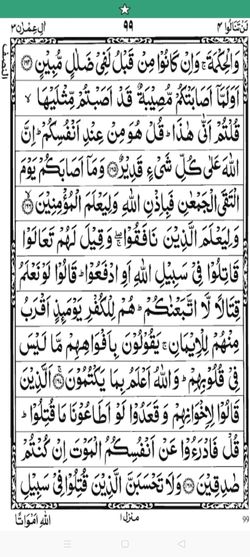 لن تنالوا ۴ ۹۹ اٰل عمرٰن ۳
وَالْحِكْمَةَ ۚ وَاِنْ كَانُوْا مِنْ قَبْلُ لَفِيْ ضَلٰلٍ مُّبِيْنٍ ﴿۱۶۴﴾
اَوَلَمَّاۤ اَصَابَتْكُمْ مُّصِيْبَةٌ قَدْ اَصَبْتُمْ مِّثْلَيْهَا ۙ
قُلْتُمْ اَنّٰى هٰذَا ؕ قُلْ هُوَ مِنْ عِنْدِ اَنْفُسِكُمْ ؕ اِنَّ
اللّٰهَ عَلٰى كُلِّ شَيْءٍ قَدِيْرٌ ﴿۱۶۵﴾ وَمَاۤ اَصَابَكُمْ يَوْمَ
الْتَقَى الْجَمْعٰنِ فَبِاِذْنِ اللّٰهِ وَلِيَعْلَمَ الْمُؤْمِنِيْنَ ﴿۱۶۶﴾
وَلِيَعْلَمَ الَّذِيْنَ نَافَقُوْا ۖۚ وَقِيْلَ لَهُمْ تَعَالَوْا
قَاتِلُوْا فِيْ سَبِيْلِ اللّٰهِ اَوِ ادْفَعُوْا ؕ قَالُوْا لَوْ نَعْلَمُ
قِتَالًا لَّا اتَّبَعْنٰكُمْ ؕ هُمْ لِلْكُفْرِ يَوْمَئِذٍ اَقْرَبُ
مِنْهُمْ لِلْاِيْمَانِ ۚ يَقُوْلُوْنَ بِاَفْوَاهِهِمْ مَّا لَيْسَ
فِيْ قُلُوْبِهِمْ ؕ وَاللّٰهُ اَعْلَمُ بِمَا يَكْتُمُوْنَ ﴿۱۶۷﴾ اَلَّذِيْنَ
قَالُوْا لِاِخْوَانِهِمْ وَقَعَدُوْا لَوْ اَطَاعُوْنَا مَا قُتِلُوْا ؕ
قُلْ فَادْرَءُوْا عَنْ اَنْفُسِكُمُ الْمَوْتَ اِنْ كُنْتُمْ
صٰدِقِيْنَ ﴿۱۶۸﴾ وَلَا تَحْسَبَنَّ الَّذِيْنَ قُتِلُوْا فِيْ سَبِيْلِ
منزل ۱ اللّٰهِ اَمْوَاتًا
99